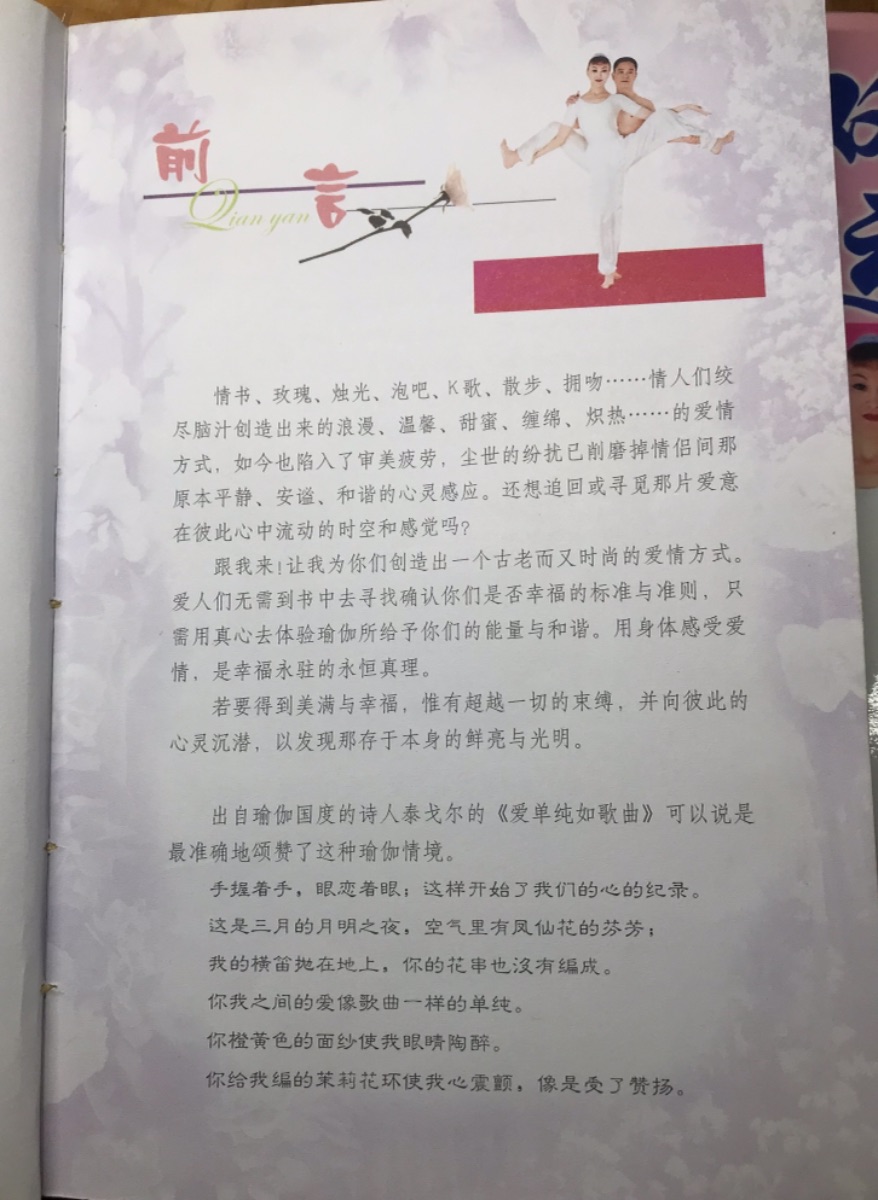 前言
Qian yan
情书、玫瑰、烛光、泡吧、K歌、散步、拥吻……情人们绞
尽脑汁创造出来的浪漫、温馨、甜蜜、缠绵、炽热……的爱情
方式，如今也陷入了审美疲劳，尘世的纷扰已削磨掉情侣间那
原本平静、安谧、和谐的心灵感应。还想追回或寻觅那片爱意
在彼此心中流动的时空和感觉吗？
跟我来！让我为你们创造出一个古老而又时尚的爱情方式。
爱人们无需到书中去寻找确认你们是否幸福的标准与准则，只
需用真心去体验瑜伽所给予你们的能量与和谐。用身体感受爱
情，是幸福永驻的永恒真理。
若要得到美满与幸福，惟有超越一切的束缚，并向彼此的
心灵沉潜，以发现那存于本身的鲜亮与光明。
出自瑜伽国度的诗人泰戈尔的《爱单纯如歌曲》可以说是
最准确地颂赞了这种瑜伽情境。
手握着手，眼恋着眼；这样开始了我们的心的纪录。
这是三月的月明之夜，空气里有凤仙花的芬芳；
我的横笛抛在地上，你的花串也没有编成。
你我之间的爱像歌曲一样的单纯。
你橙黄色的面纱使我眼睛陶醉。
你给我编的茉莉花环使我心震颤，像是受了赞扬。